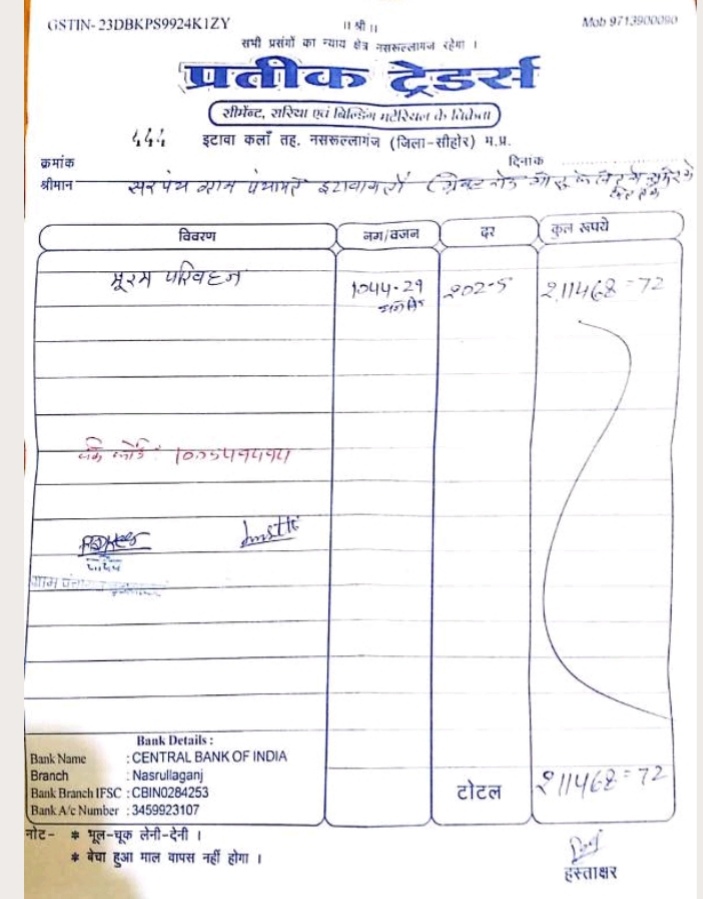 GSTIN- 23DBKPS9924K1ZY
॥ श्री ॥
Mob 9713900090
सभी प्रसंगों का न्याय क्षेत्र नसरूल्लागंज रहेगा ।
प्रतीक ट्रेडर्स
सीमेंट, सरिया एवं बिल्डिंग मटेरियल के विक्रेता
444
इटावा कलाँ तह. नसरूल्लागंज (जिला-सीहोर) म.प्र.
क्रमांक
दिनांक
श्रीमान सरपंच ग्राम पंचायत इटावाकलाँ
विवरण नग/वजन दर कुल रूपये
मूरम परिवहन 1044-29 202-5 211468=72
Bank Details :
Bank Name : CENTRAL BANK OF INDIA
Branch : Nasrullaganj
Bank Branch IFSC : CBIN0284253
Bank A/c Number : 3459923107
टोटल 211468=72
नोट- * भूल-चूक लेनी-देनी ।
* बेचा हुआ माल वापस नहीं होगा ।
हस्ताक्षर